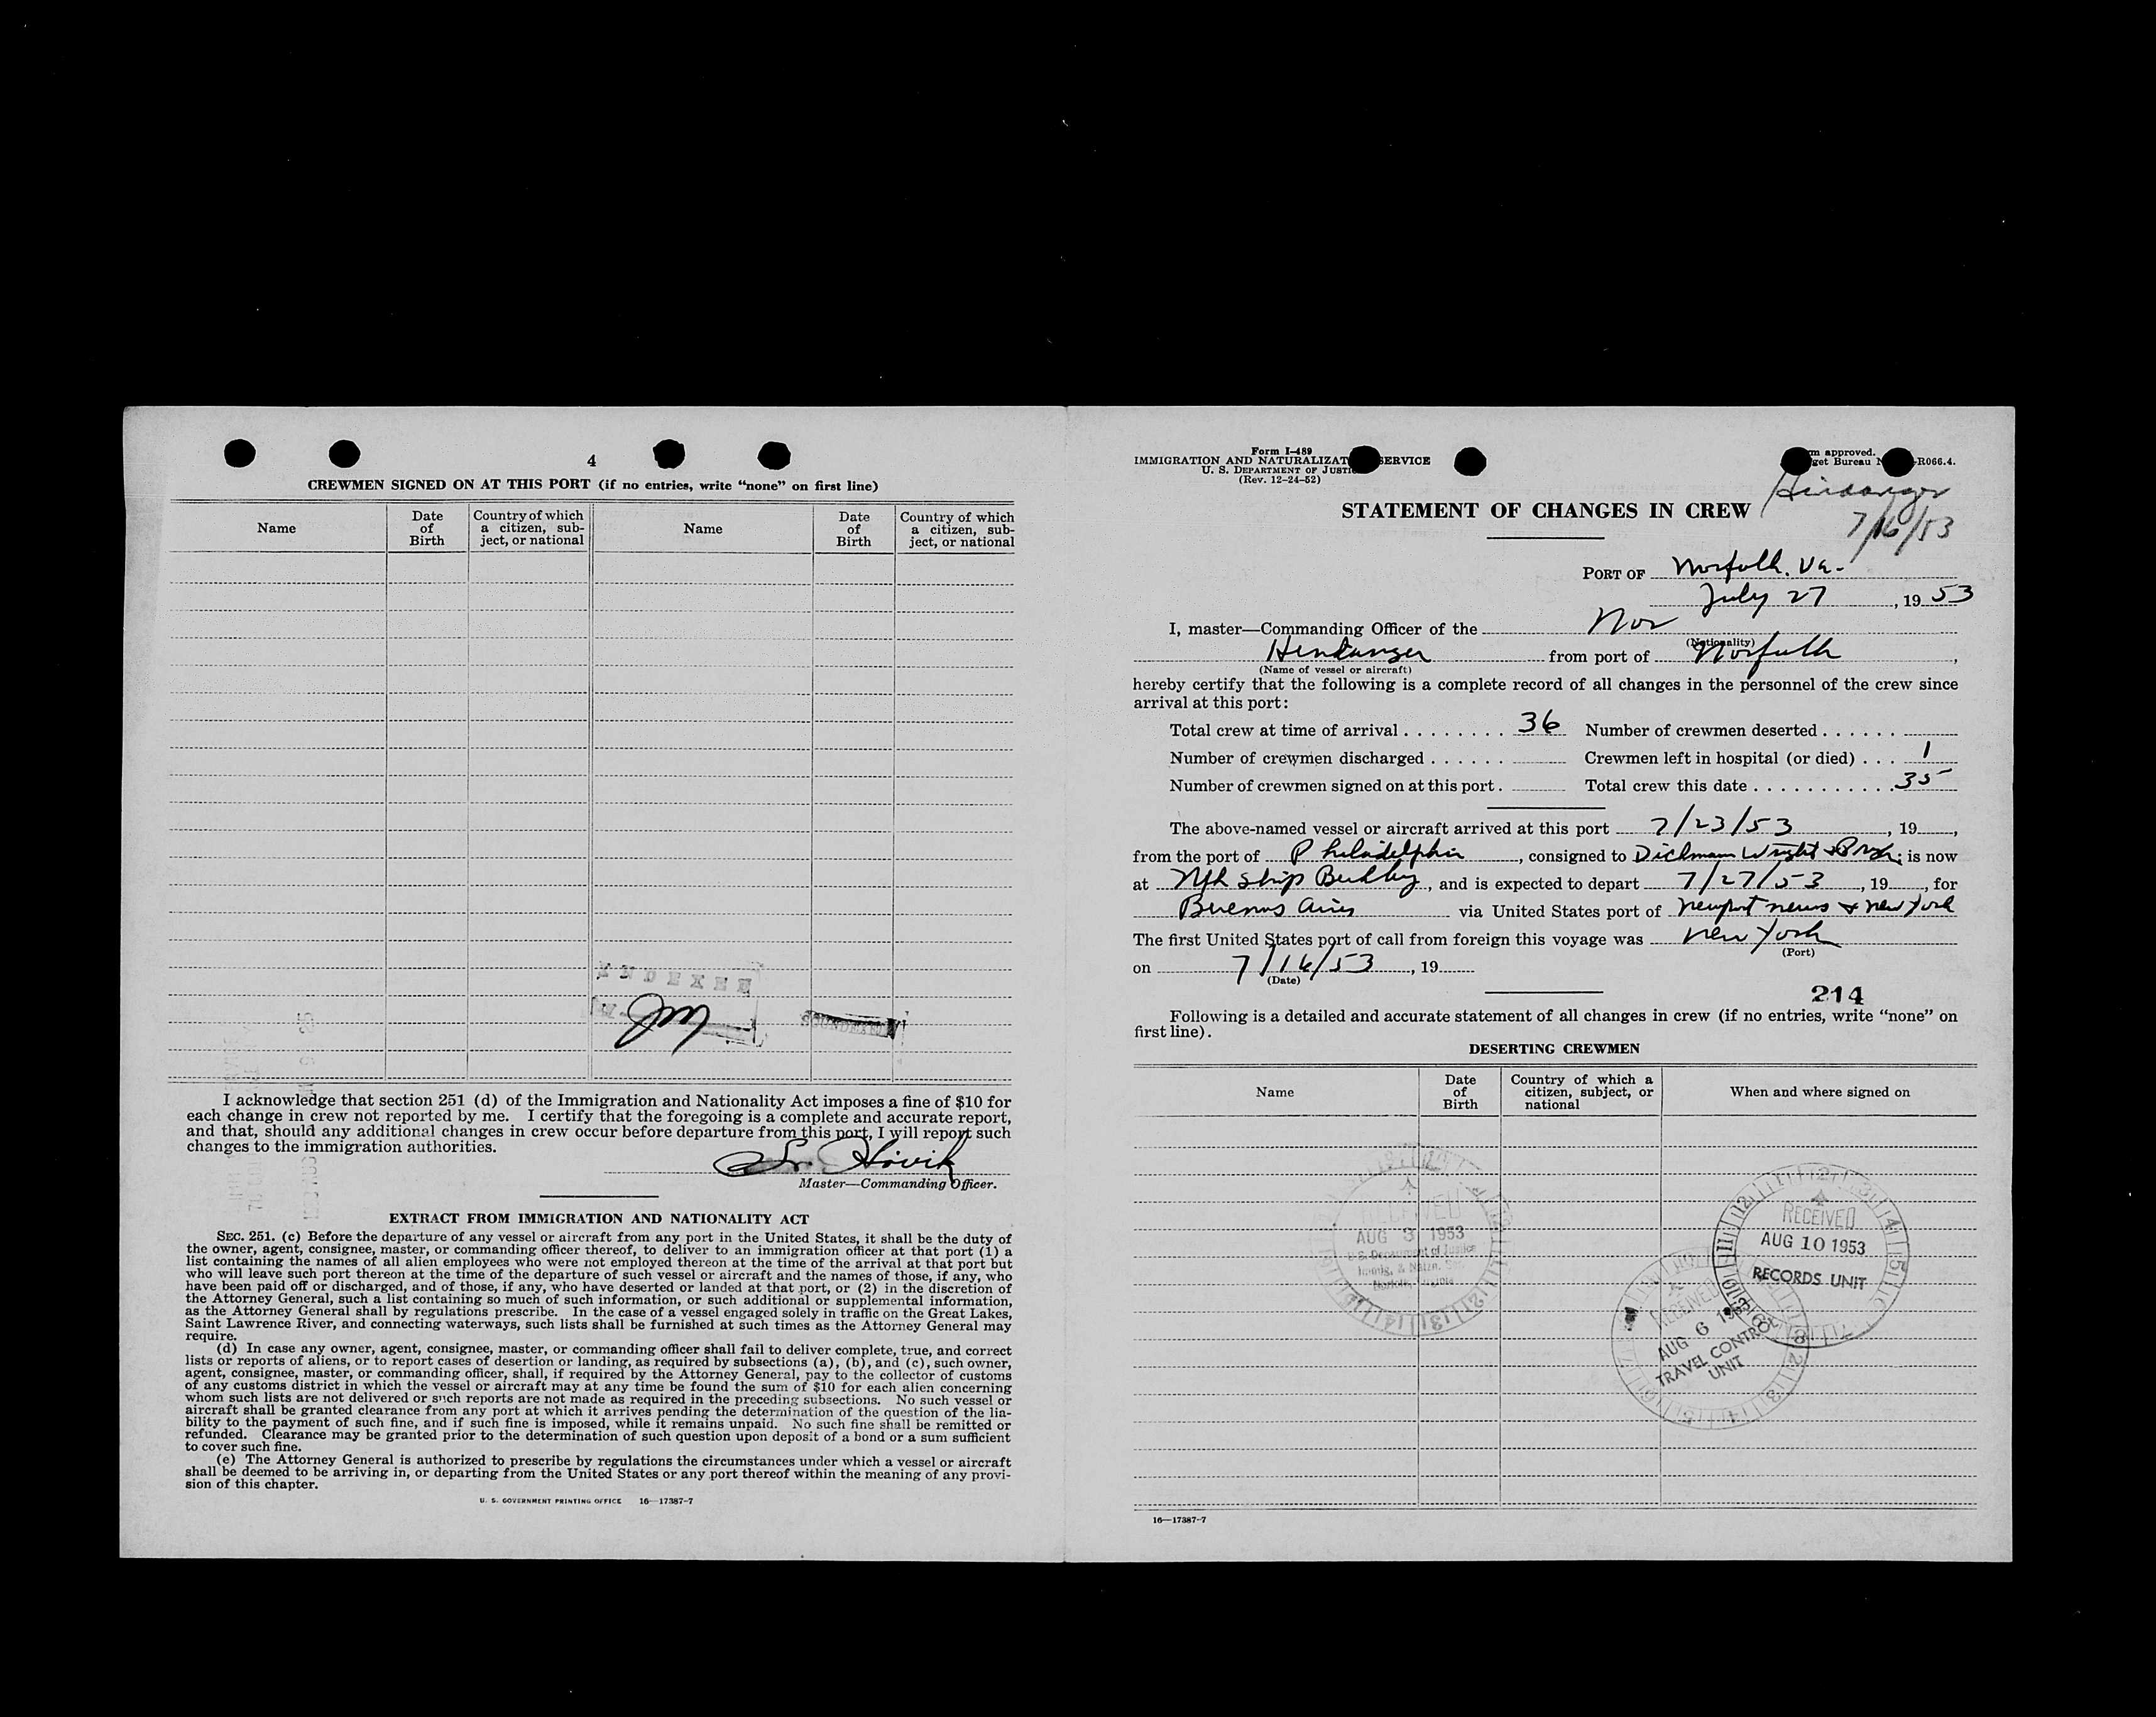 4
CREWMEN SIGNED ON AT THIS PORT (if no entries, write “none” on first line)
Name
Date of Birth
Country of which a citizen, sub-
ject, or national
Name
Date of Birth
Country of which a citizen, sub-
ject, or national
INDEXED
SOUNDEXED
I acknowledge that section 251 (d) of the Immigration and Nationality Act imposes a fine of $10 for
each change in crew not reported by me. I certify that the foregoing is a complete and accurate report,
and that, should any additional changes in crew occur before departure from this port, I will report such
changes to the immigration authorities.
Hovik
Master—Commanding Officer.
EXTRACT FROM IMMIGRATION AND NATIONALITY ACT
SEC. 251. (c) Before the departure of any vessel or aircraft from any port in the United States, it shall be the duty of
the owner, agent, consignee, master, or commanding officer thereof, to deliver to an immigration officer at that port (1) a
list containing the names of all alien employees who were not employed thereon at the time of the arrival at that port but
who will leave such port thereon at the time of the departure of such vessel or aircraft and the names of those, if any, who
have been paid off or discharged, and of those, if any, who have deserted or landed at that port, or (2) in the discretion of
the Attorney General, such a list containing so much of such information, or such additional or supplemental information,
as the Attorney General shall by regulations prescribe. In the case of a vessel engaged solely in traffic on the Great Lakes,
Saint Lawrence River, and connecting waterways, such lists shall be furnished at such times as the Attorney General may
require.
(d) In case any owner, agent, consignee, master, or commanding officer shall fail to deliver complete, true, and correct
lists or reports of aliens, or to report cases of desertion or landing, as required by subsections (a), (b), and (c), such owner,
agent, consignee, master, or commanding officer, shall, if required by the Attorney General, pay to the collector of customs
of any customs district in which the vessel or aircraft may at any time be found the sum of $10 for each alien concerning
whom such lists are not delivered or such reports are not made as required in the preceding subsections. No such vessel or
aircraft shall be granted clearance from any port at which it arrives pending the determination of the question of the lia-
bility to the payment of such fine, and if such fine is imposed, while it remains unpaid. No such fine shall be remitted or
refunded. Clearance may be granted prior to the determination of such question upon deposit of a bond or a sum sufficient
to cover such fine.
(e) The Attorney General is authorized to prescribe by regulations the circumstances under which a vessel or aircraft
shall be deemed to be arriving in, or departing from the United States or any port thereof within the meaning of any provi-
sion of this chapter.
U. S. GOVERNMENT PRINTING OFFICE 16—17387-7
Form I-489
IMMIGRATION AND NATURALIZAT SERVICE
U. S. DEPARTMENT OF JUSTI
(Rev. 12-24-52)
m approved.
get Bureau N -R066.4.
Hindanger
7/16/53
STATEMENT OF CHANGES IN CREW
PORT OF Norfolk. Va.
July 27, 1953
I, master—Commanding Officer of the Nor
(Nationality)
Hindanger from port of Norfolk,
(Name of vessel or aircraft)
hereby certify that the following is a complete record of all changes in the personnel of the crew since
arrival at this port:
Total crew at time of arrival . . . . . . . . 36 Number of crewmen deserted . . . . . .
Number of crewmen discharged . . . . . . Crewmen left in hospital (or died) . . . 1
Number of crewmen signed on at this port . Total crew this date . . . . . . . . . . . 35
The above-named vessel or aircraft arrived at this port 7/23/53, 19 ,
from the port of Philadelphia, consigned to Dichmann Wright & ; is now
at Nfk Ship , and is expected to depart 7/27/53, 19 , for
Buenos Aires via United States port of Newport news & new York
The first United States port of call from foreign this voyage was new York
(Port)
on 7/16/53, 19
(Date)
214
Following is a detailed and accurate statement of all changes in crew (if no entries, write “none” on
first line).
DESERTING CREWMEN
Name
Date of Birth
Country of which a citizen, subject, or national
When and where signed on
RECEIVED
AUG 3 1953
U.S. Department of Justice
Immig. & Natzn. Ser.
Norfolk, Virginia
RECEIVED
AUG 10 1953
RECORDS UNIT
RECEIVED
AUG 6 1953
TRAVEL CONTROL
UNIT
16—17387-7